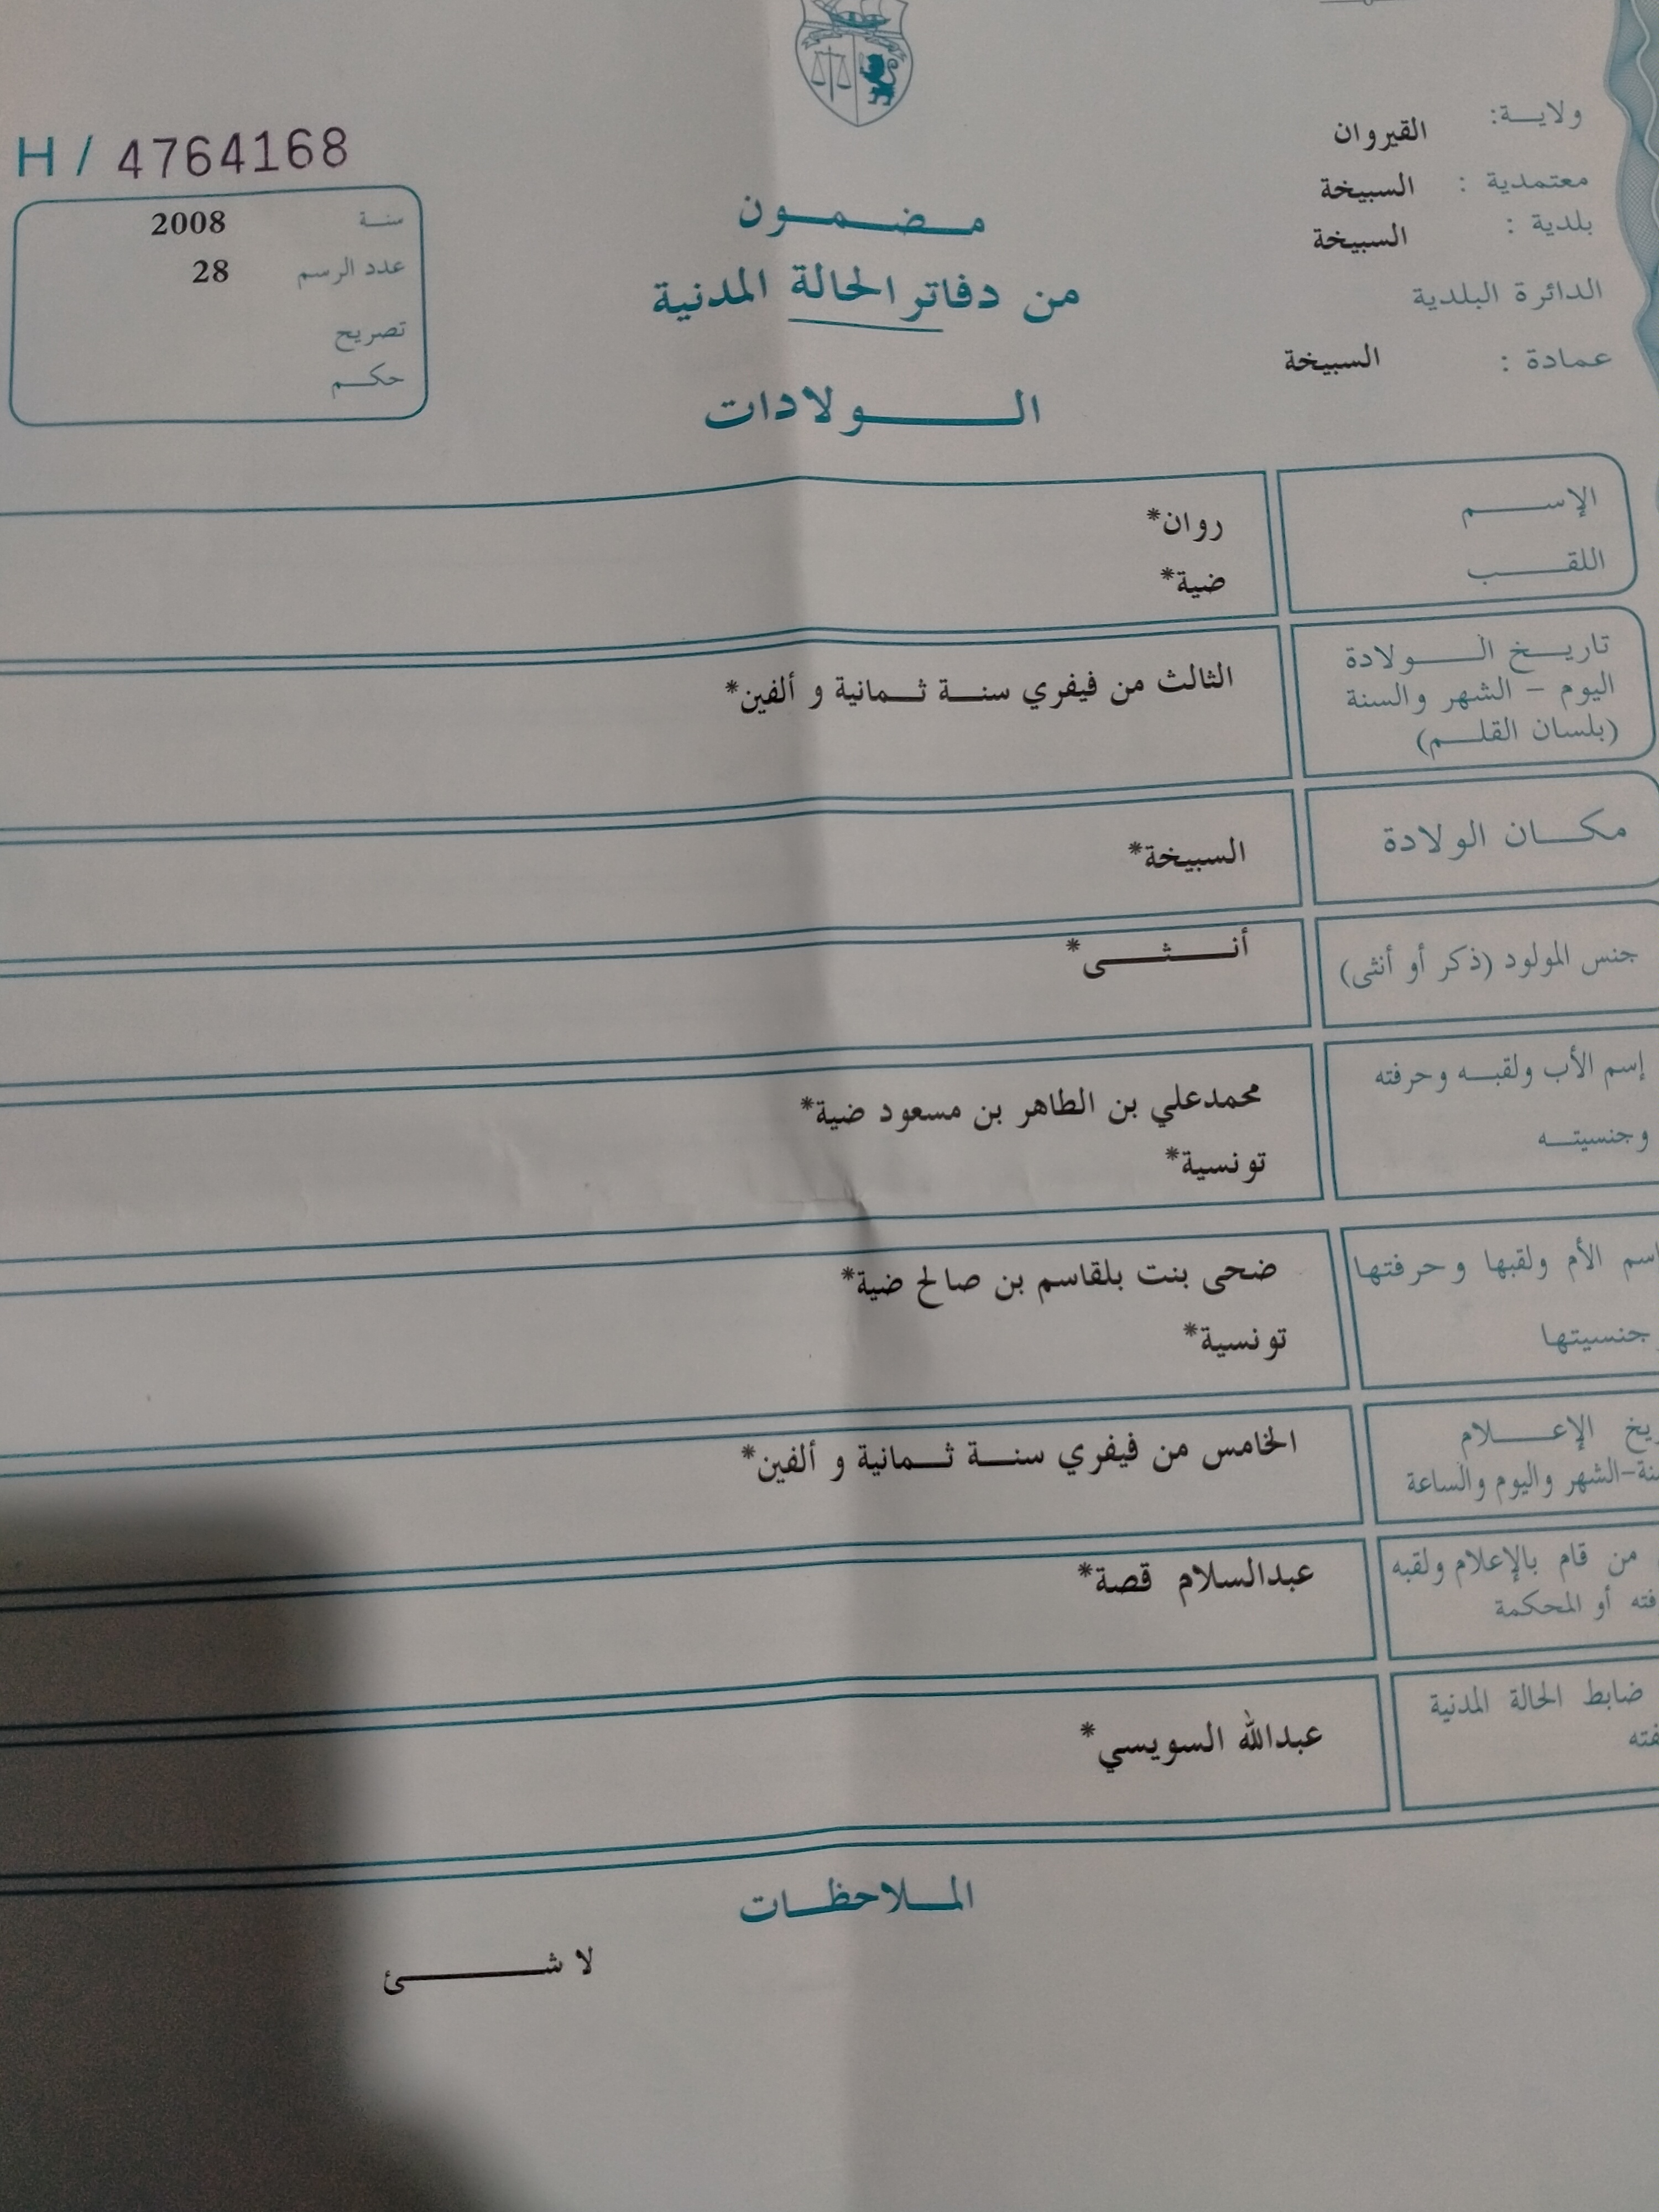 ولاية: القيروان
معتمدية : السبيخة
بلدية : السبيخة
الدائرة البلدية
عمادة : السبيخة
H / 4764168
سنة 2008
عدد الرسم 28
تصريح
حكم
مضمون
من دفاتر الحالة المدنية
الولادات
الإسم روان*
اللقب ضية*
تاريخ الولادة
اليوم - الشهر والسنة
(بلسان القلم)
الثالث من فيفري سنة ثمانية و ألفين*
مكان الولادة السبيخة*
جنس المولود (ذكر أو أنثى) أنثى*
إسم الأب ولقبه وحرفته
وجنسيته
محمدعلي بن الطاهر بن مسعود ضية*
تونسية*
اسم الأم ولقبها وحرفتها
جنسيتها
ضحى بنت بلقاسم بن صالح ضية*
تونسية*
الإعلام
الشهر واليوم والساعة
الخامس من فيفري سنة ثمانية و ألفين*
من قام بالإعلام ولقبه
أو المحكمة
عبدالسلام قصة*
ضابط الحالة المدنية
عبدالله السويسي*
الملاحظات
لا شئ